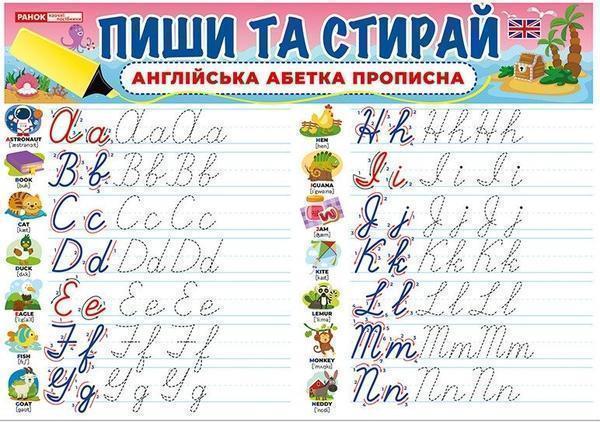 РАНОК
ПИШИ ТА СТИРАЙ
АНГЛІЙСЬКА АБЕТКА ПРОПИСНА
ASTRONAUT
Aa Aa Aa
BOOK
[bʊk]
Bb Bb Bb
CAT
[kæt]
Cc Cc Cc
DUCK
[dʌk]
Dd Dd Dd
EAGLE
Ee Ee Ee
FISH
[fɪʃ]
Ff Ff Ff
GOAT
[gəʊt]
Gg Gg Gg
HEN
[hen]
Hh Hh Hh
IGUANA
Ii Ii Ii
JAM
[dʒæm]
Jj Jj Jj
KITE
[kaɪt]
Kk Kk Kk
LEMUR
Ll Ll Ll
MONKEY
Mm Mm Mm
NEDDY
Nn Nn Nn